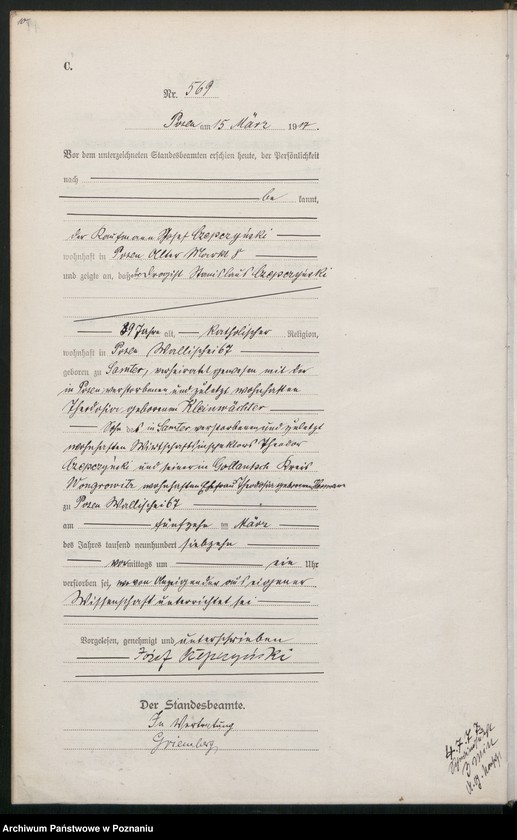 C.
Nr. 569
Posen am 15 März 1917.
Vor dem unterzeichneten Standesbeamten erschien heute, der Persönlichkeit
nach
be kannt,
der Kaufmann Josef Czepczyński
wohnhaft in Posen Alter Markt 8
und zeigte an, daß der Drogist Stanislaus Czepczyński
39 Jahre alt, katholischer Religion,
wohnhaft in Posen Wallischei 67
geboren zu Samter, verheiratet gewesen mit der
in Posen verstorbenen und zuletzt wohnhaften
Theodosia geborenen Kleinwächter
Sohn des in Samter verstorbenen und zuletzt
wohnhaften Wirtschaftsinspektors Theodor
Czepczyński und seiner in Gollantsch Kreis
Wongrowitz wohnhaften Ehefrau Theodosia geborenen
zu Posen Wallischei 67
am fünfzehn ten März
des Jahres tausend neunhundert siebzehn
vormittags um ein Uhr
verstorben sei, wovon Anzeigender aus eigener
Wissenschaft unterrichtet sei
Vorgelesen, genehmigt und unterschrieben
Józef Czepczyński
Der Standesbeamte.
In Vertretung
Griemberg
Archiwum Państwowe w Poznaniu